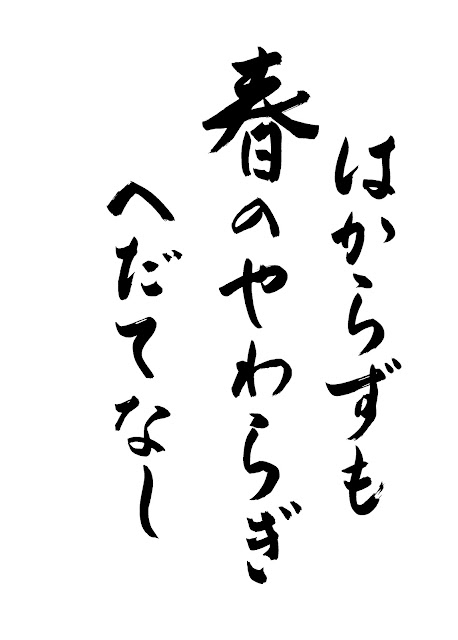 はからずも
春のやわらぎ
へだてなし